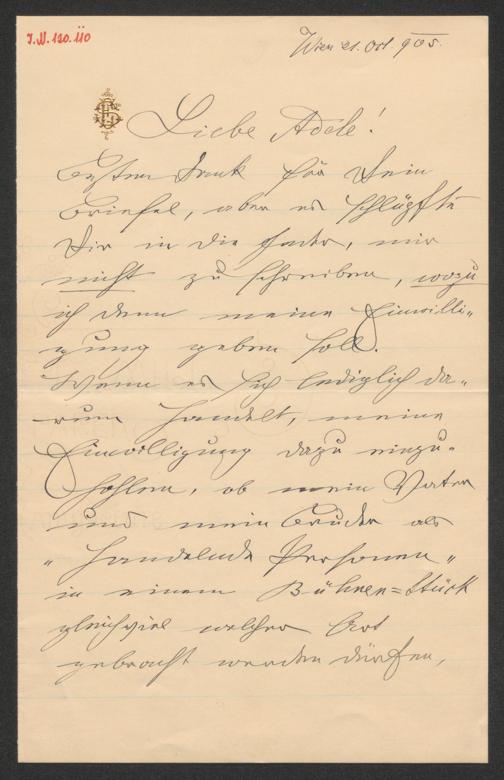 I.N. 120.110
Wien 21. Oct. 905.
Liebe Adele!
Besten Dank für Dein
Brieferl, aber es schlüpfte
Dir in die Feder, mir
nicht zu schreiben, wozu
ich denn meine Einwilli„
gung geben soll.
Wenn es sich lediglich da„
rum handelt, meine
Einwilligung dazu einzu„
hohlen, ob mein Vater
und mein Bruder als
„handelnde Personen„
in einem Bühnen=Stück
gleichviel welcher Art
gebracht werden dürfen,